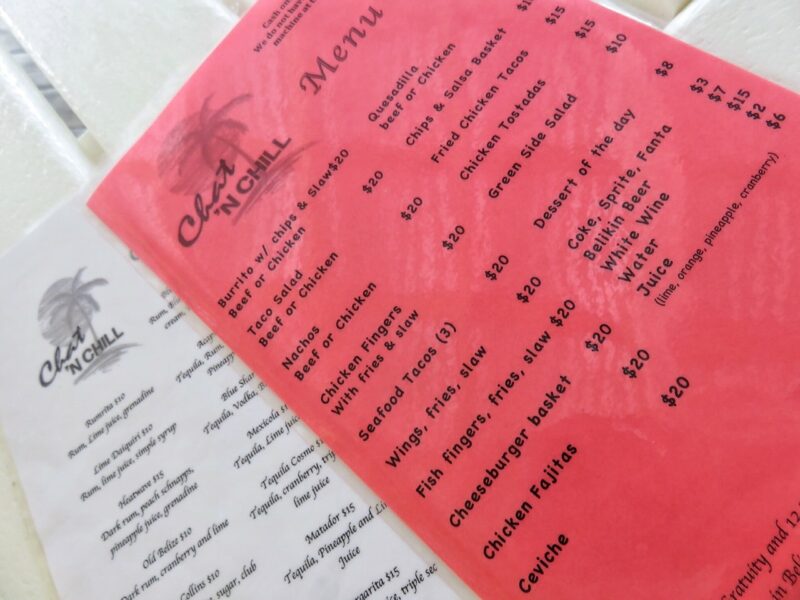 Cash on
We do not hav
machine at
Menu
Chat
'N CHILL
Burrito w/ chips & Slaw$20
Beef or Chicken
Taco Salad $20
Beef or Chicken
Nachos $20
Beef or Chicken
Chicken Fingers $20
With fries & slaw
Seafood Tacos (3) $20
Wings, fries, slaw $20
Fish fingers, fries, slaw $20
Cheeseburger basket $20
Chicken Fajitas $20
Ceviche $20
Quesadilla
beef or Chicken
Chips & Salsa Basket
Fried Chicken Tacos $15
Chicken Tostadas $15
Green Side Salad $10
Dessert of the day $8
Coke, Sprite, Fanta $3
Belikin Beer $7
White Wine $15
Water $2
Juice $6
(lime, orange, pineapple, cranberry)
ratuity and 12
in Bel
Chat
'N CHILL
Rumrita $10
Rum, Lime juice, grenadine
Lime Daiquiri $10
Rum, lime juice, simple syrup
Heatwave $15
Dark rum, peach schnapps,
pineapple juice, grenadine
Old Belize $10
Dark rum, cranberry and lime
Collins $10
sugar, club
Rum,
cream
Tequila, Rum
Pineapple
Blue
Tequila, Vodka,
Mexicola $1
Tequila, Lime
Tequila Cosmo
Tequila, cranberry,
lime juice
Matador $15
Tequila, Pineapple and Li
Juice
argarita $15
juice, triple sec